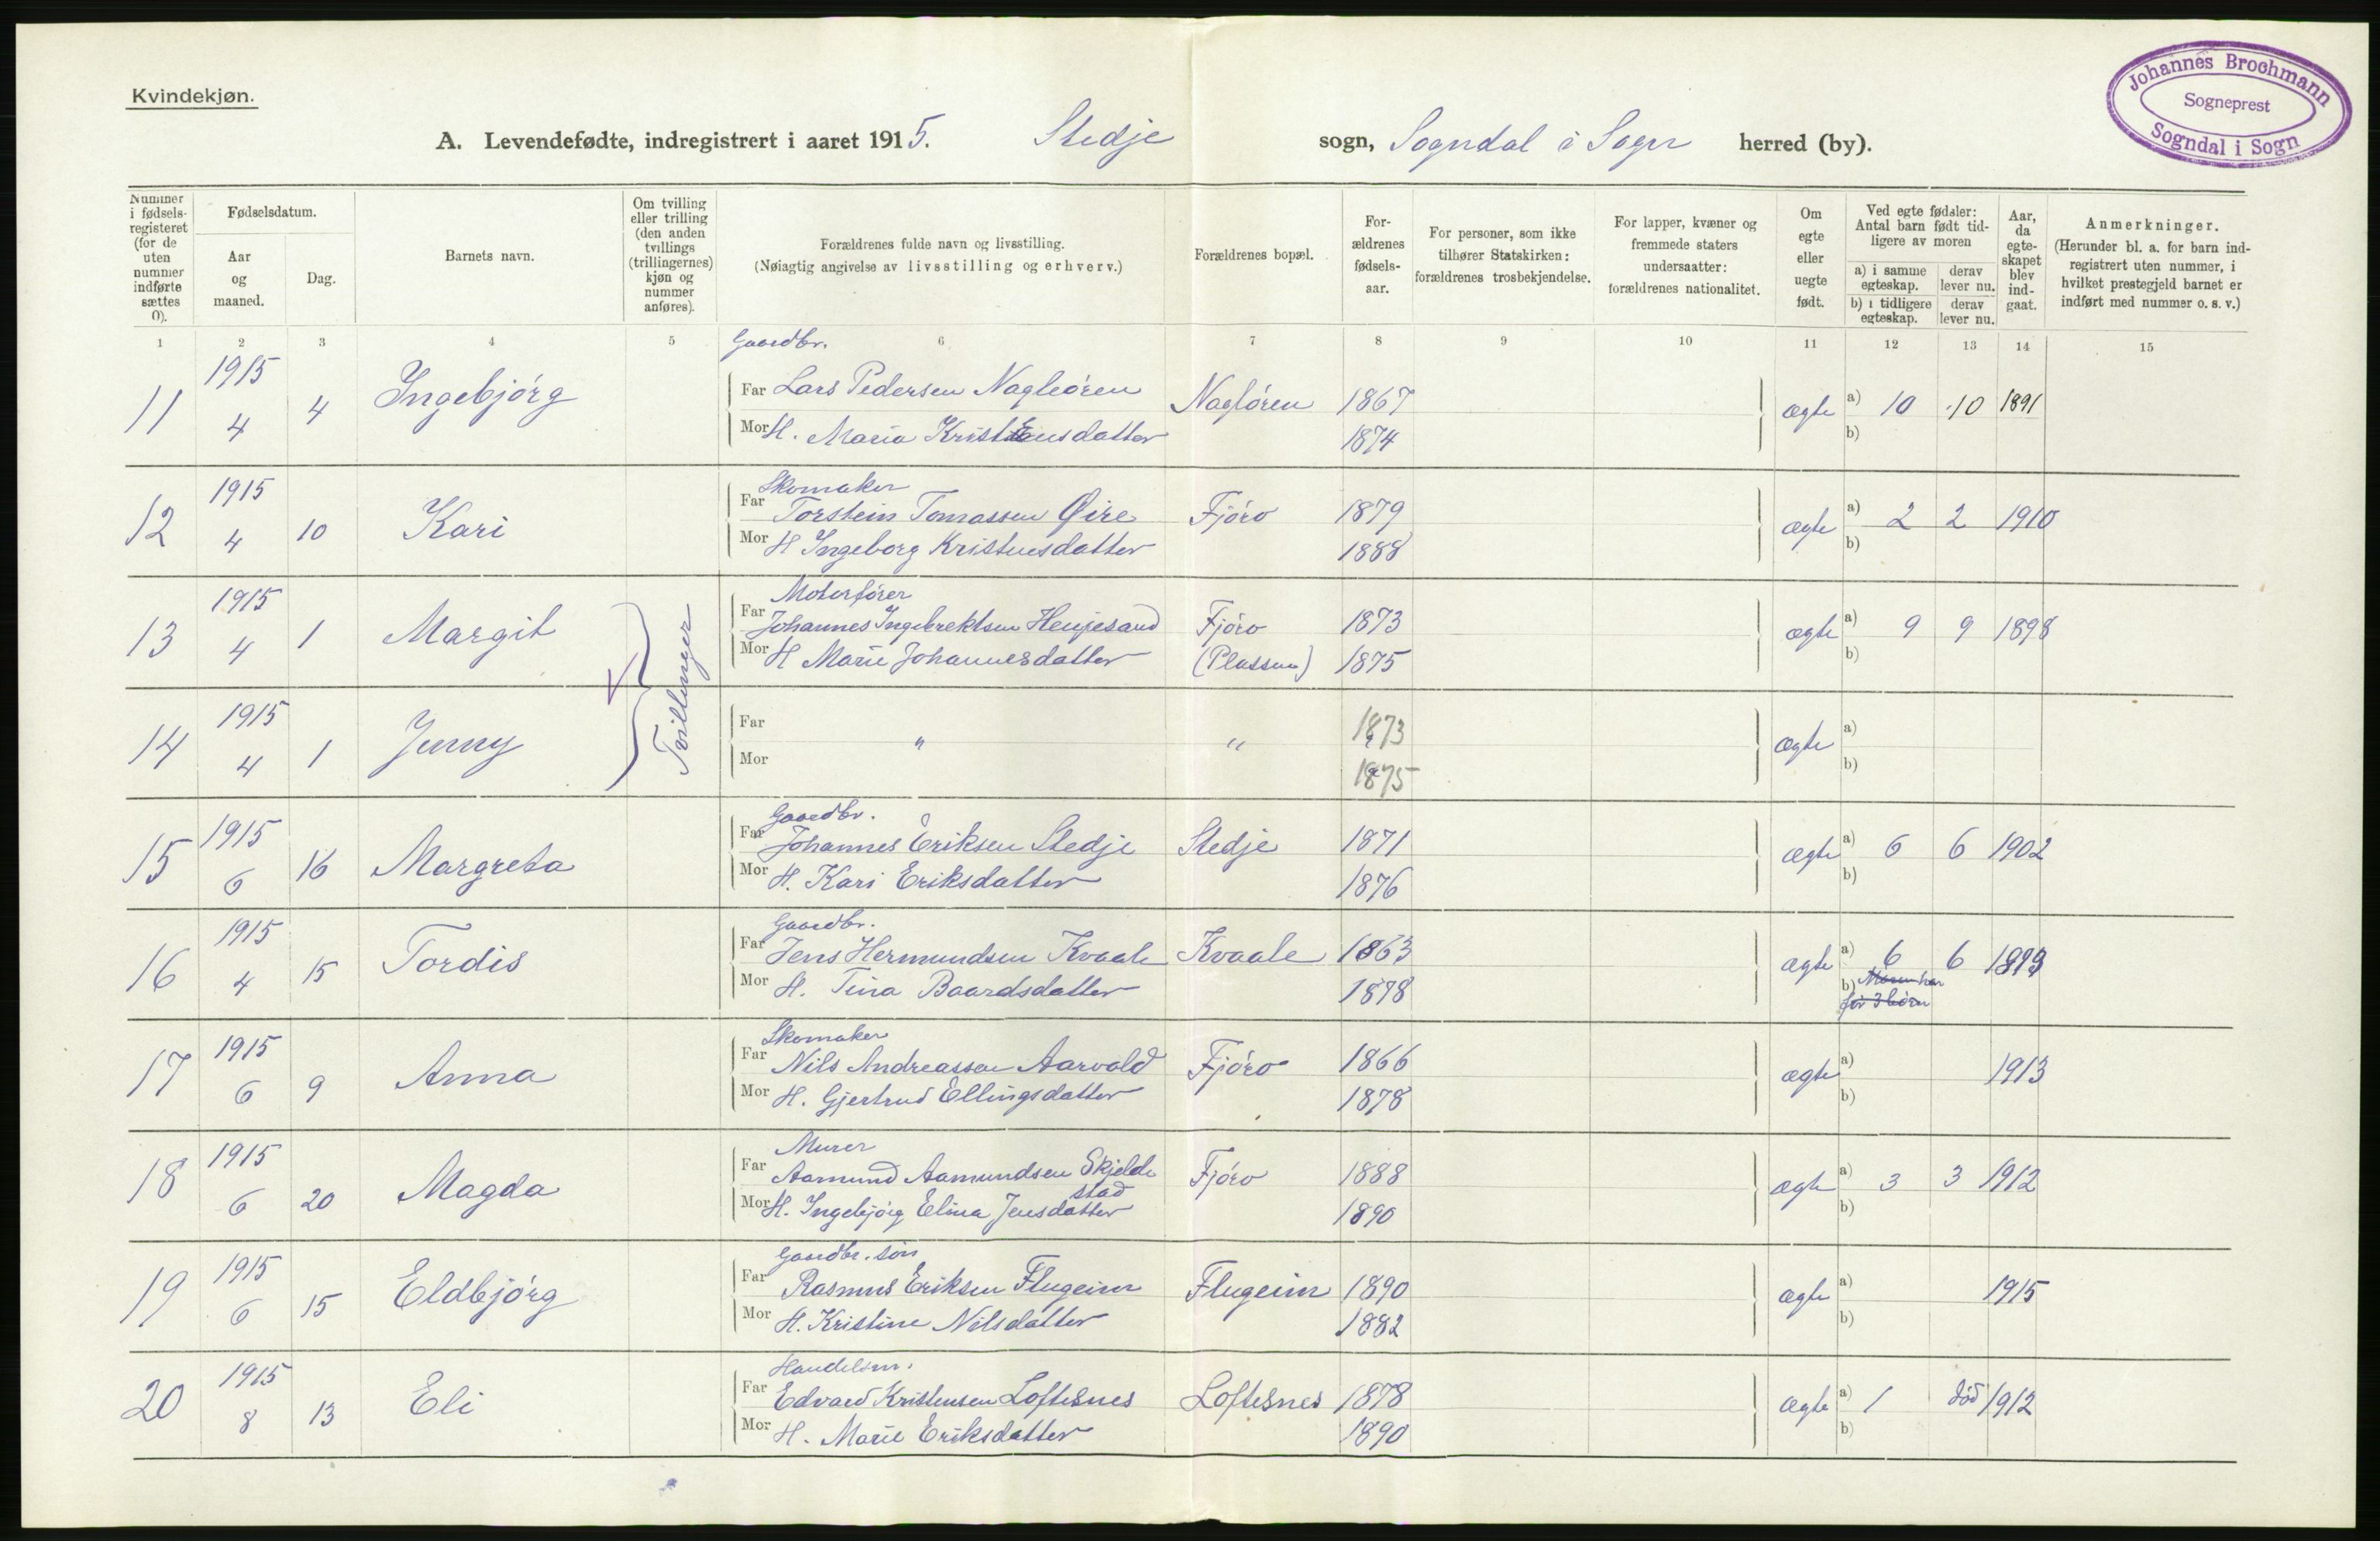 Kvindekjøn.
Johannes Brochmann
Sogneprest
Sogndal i Sogn
A. Levendefødte, indregistrert i aaret 1915. Stedje sogn, Sogndal i Sogn herred (by).
Nummer i fødsels-registeret (for de uten nummer indførte sættes 0).
Fødselsdatum.
Aar og maaned.
Dag.
Barnets navn.
Om tvilling eller trilling (den anden tvillings (trillingernes) kjøn og nummer anføres).
Forældrenes fulde navn og livsstilling.
(Nøiagtig angivelse av livsstilling og erhverv.)
Forældrenes bopæl.
For-ældrenes fødsels-aar.
For personer, som ikke tilhører Statskirken: forældrenes trosbekjendelse.
For lapper, kvæner og fremmede staters undersaatter: forældrenes nationalitet.
Om egte eller uegte født.
Ved egte fødsler: Antal barn født tid-ligere av moren
a) i samme egteskap.
derav lever nu.
b) i tidligere egteskap.
derav lever nu.
Aar, da egte-skapet blev ind-gaat.
Anmerkninger.
(Herunder bl. a. for barn ind-registrert uten nummer, i hvilket prestegjeld barnet er indført med nummer o. s. v.)
1 2 3 4 5 6 7 8 9 10 11 12 13 14 15
Gaardbr.
11 1915 4 4 Ingebjörg Far Lars Pedersen Nagleören Naglören 1867 ægte a) 10 10 1891
Mor H. Maria Kristensdatter 1874 b)
Skomaker
12 1915 4 10 Kari Far Torstein Tomassen Øire Fjöro 1879 ægte a) 2 2 1910
Mor H Ingeborg Kristensdatter 1888 b)
Motorfører
13 1915 4 1 Margit Tvillinger Far Johannes Ingebrektsen Henjesand Fjöro 1873 ægte a) 9 9 1898
Mor H Marie Johannesdatter (Plassen) 1875 b)
14 1915 4 1 Jenny Far " " 1873 ægte a)
Mor 1875 b)
Gaardbr.
15 1915 6 16 Margreta Far Johannes Eriksen Stedje Stedje 1871 ægte a) 6 6 1902
Mor H. Kari Eriksdatter 1876 b)
Gaardbr.
16 1915 4 15 Tordis Far Jens Hermundsen Kvaale Kvaale 1863 ægte a) 6 6
Mor H. Tina Baardsdatter 1878 b) Moren har
før 3 börn
Skomaker
17 1915 6 9 Anna Far Nils Andreassen Aarvold Fjöro 1866 ægte a) 1913
Mor H. Gjertrud Ellingsdatter 1878 b)
Murer
18 1915 6 20 Magda Far Aamund Aamundsen Skjelde Fjöro 1888 ægte a) 3 3 1912
stad
Mor H. Ingebjörg Elina Jensdatter 1890 b)
Gaardbr. sön
19 1915 6 15 Eldbjörg Far Rasmus Eriksen Flugeim Flugeim 1890 ægte a) 1915
Mor H. Kristine Nilsdatter 1882 b)
Handelsm.
20 1915 8 13 Eli Far Edvard Kristensen Loftesnes Loftesnes 1878 ægte a) 1 död 1912
Mor H. Marie Eriksdatter 1890 b)